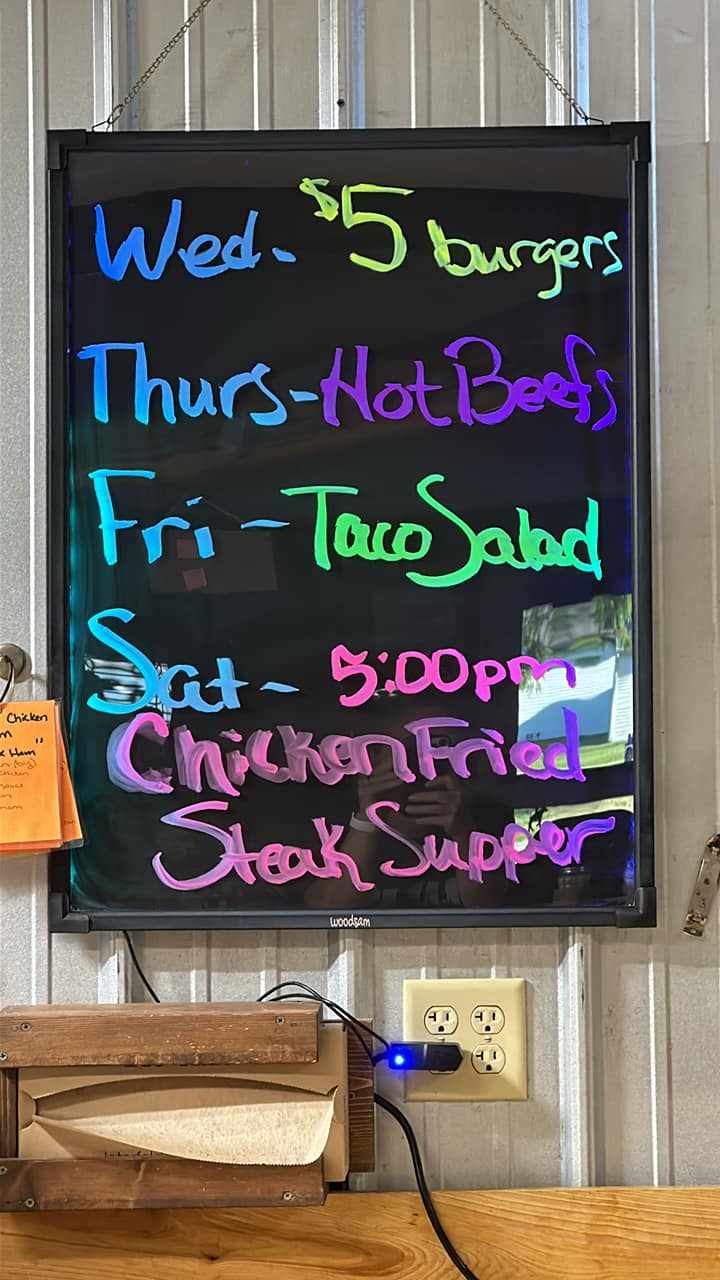 Wed. $5 burgers
Thurs-Hot Beefs
Fri - Taco Salad
Sat - 5:00pm
Chicken Fried
Steak Supper
woodsam
Chicken
Ham "